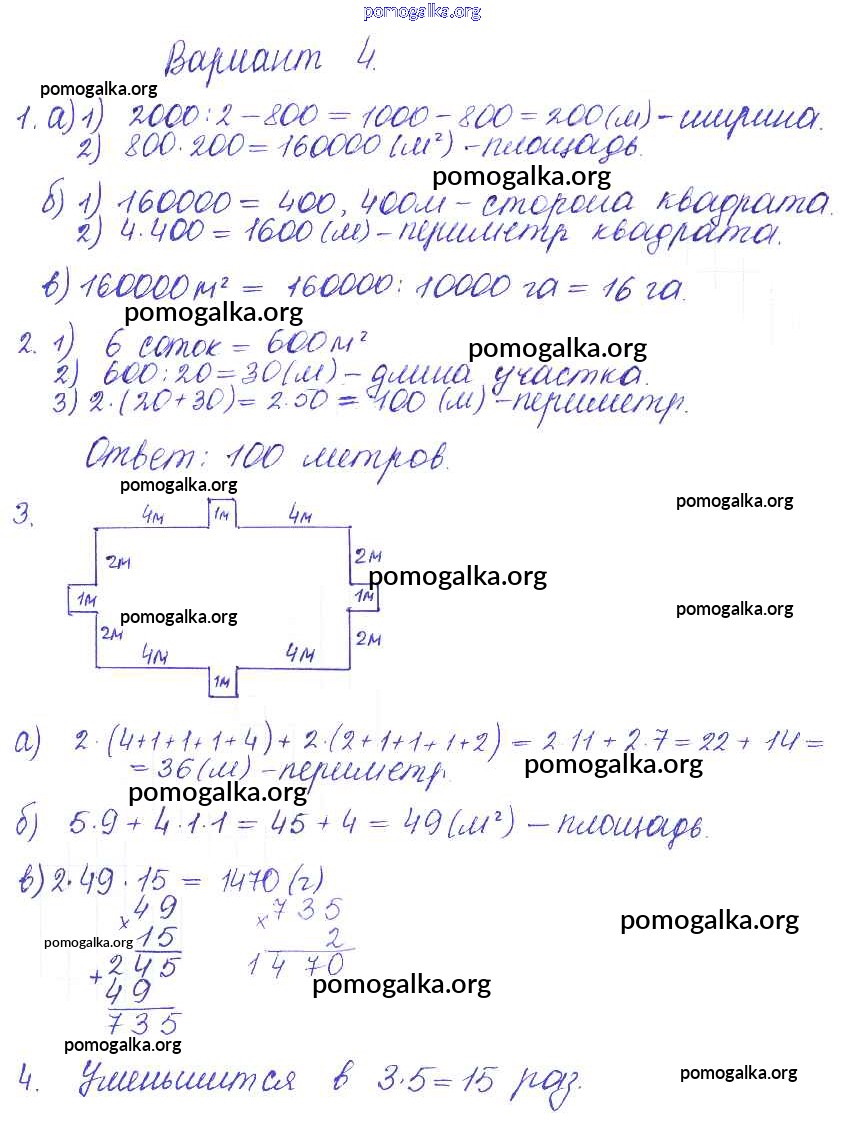 pomogalka.org
Вариант 4.
pomogalka.org
pomogalka.org
1. а) 1) 2000:2-800=1000-800=200(м)-ширина.
2) 800·200=160000(м²)-площадь.
pomogalka.org
б) 1) 160000 = 400, 400м-сторона квадрата.
2) 4·400=1600(м)-периметр квадрата.
в) 160000м² = 160000:10000 га = 16 га.
pomogalka.org
2. 1) 6 соток = 600м²
pomogalka.org
2) 600:20=30(м)-длина участка.
3) 2·(20+30)=2·50=100 (м)-периметр.
Ответ: 100 метров.
pomogalka.org
pomogalka.org
3.
4м 1м 4м
2м 2м
pomogalka.org
1м 1м
pomogalka.org
pomogalka.org
2м 2м
4м 4м
1м
а) 2·(4+1+1+1+4)+2·(2+1+1+1+2)=2·11+2·7=22+14=
=36(м)-периметр.
pomogalka.org
pomogalka.org
б) 5·9+4·1·1=45+4=49(м²)-площадь.
в) 2·49·15 = 1470(г)
×49 ×735
15 2
pomogalka.org
pomogalka.org
+245 1470
49
pomogalka.org
735
pomogalka.org
4. Уменьшится в 3·5=15 раз.
pomogalka.org